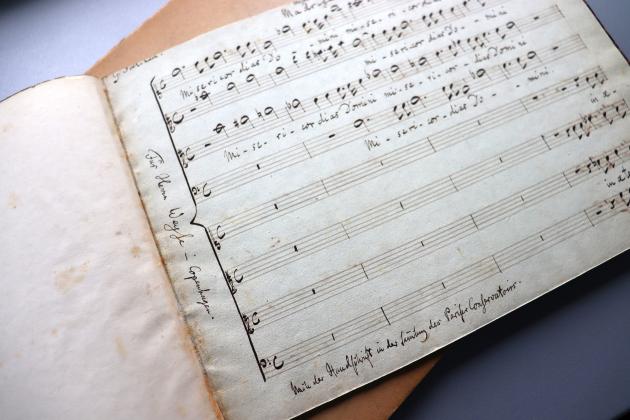 mi-se-ri-cor-dias Do - mini
Misericordias Do - mini mi-se-ri-cor-dias Domini
Mi-se-ri-cor dias Domini mi-se-ri-cor-dias Do - - mini.
in æ-
in æ
Für Herrn Weyse in Copenhagen.
der Handschrift in der Samlung des Pariser Conservatoirs.